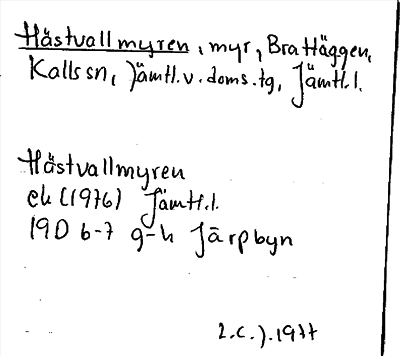 Hästvallmyren, myr, Brattäggen,
Kalls sn, Jämtl.v.doms.tg, Jämtl.l.
Hästvallmyren
ek (1976) Jämtl.l.
19D 6-7 g-h Järpbyn
L.C.J. 1977